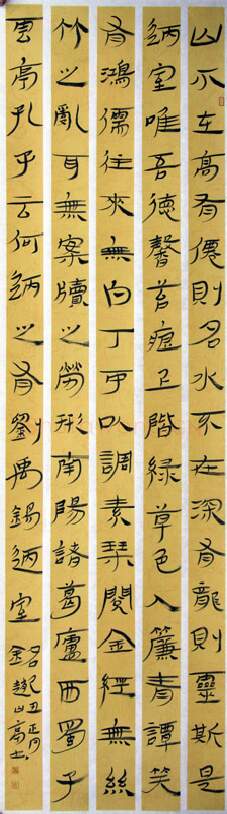 山不在高有僊則名水不在深有龍則靈斯是
陋室唯吾德馨苔痕上階綠草色入簾青譚笑
有鴻儒往來無白丁可以調素琴閱金經無絲
竹之亂耳無案牘之勞形南陽諸葛廬西蜀子
雲亭孔子云何陋之有劉禹錫陋室銘
丑正月
趙山高士